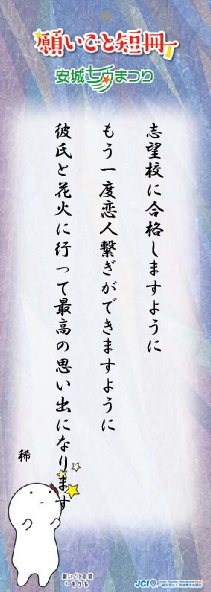 願いごと短冊
安城七夕まつり
志望校に合格しますように
もう一度恋人繋ぎができますように
彼氏と花火に行って最高の思い出になります
稀
JCI